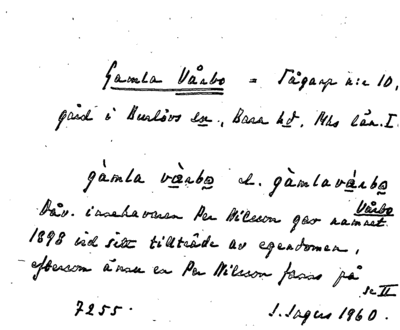 Gamla Vårbo = Tågarp n:r 10,
gård i Burlövs sn, Bara hd, Mhs län. I.
gàmla vàrbo el. gàmlavárbo
Dåv. innehavaren Per Nilsson gav namnet Vårbo
1898 vid sitt tillträde av egendomen,
eftersom ännu en Per Nilsson fanns på
se II
7255. I. Ingers 1960.